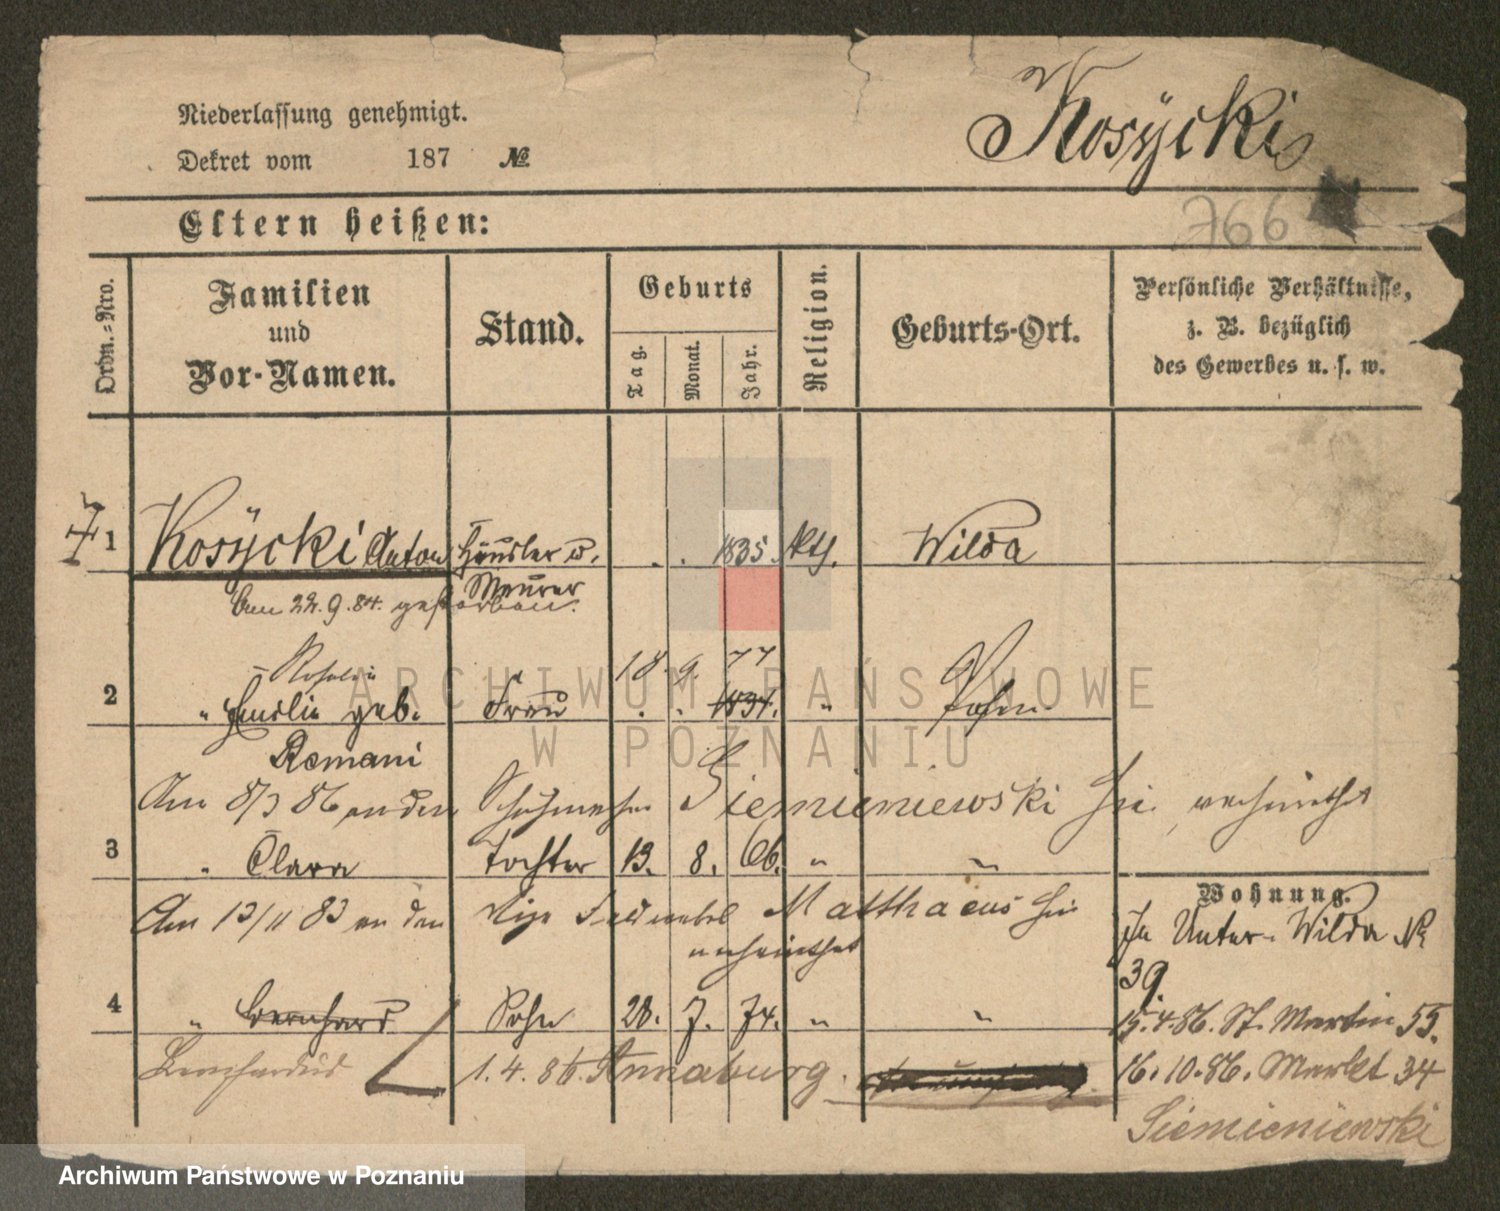 Niederlassung genehmigt.
Kosycki
Dekret vom 187 №
766
Eltern heißen:
Ordn.-Nro.
Familien
und
Vor-Namen.
Stand.
Geburts
Tag.
Monat.
Jahr.
Religion.
Geburts-Ort.
Persönliche Verhältnisse,
z. B. bezüglich
des Gewerbes u. s. w.
1 Kosycki Anton Häusler u. 1835. kth. Wilda
Maurer
am 22.9.84. gestorben.
Rosalie 18. 9. 77
2 " Emilie geb. Frau 1837. " Posen
Romani
Am 8/3 86 an den Schuhmacher Siemieniewski hier verheirathet
3 " Clara Tochter 13. 8. 66. " "
Wohnung.
Am 13/11 83 an den Feldwebel Matthaeus hier
verheirathet
In Unter-Wilda №
39.
4 " Bernhard Sohn 28. 7. 74. " "
15.4.86. St. Martin 55.
Bernhardus 1.4.86. Annaburg.
16.10.86. Markt 34
Siemieniewski
ARCHIWUM PAŃSTWOWE
W POZNANIU
Archiwum Państwowe w Poznaniu